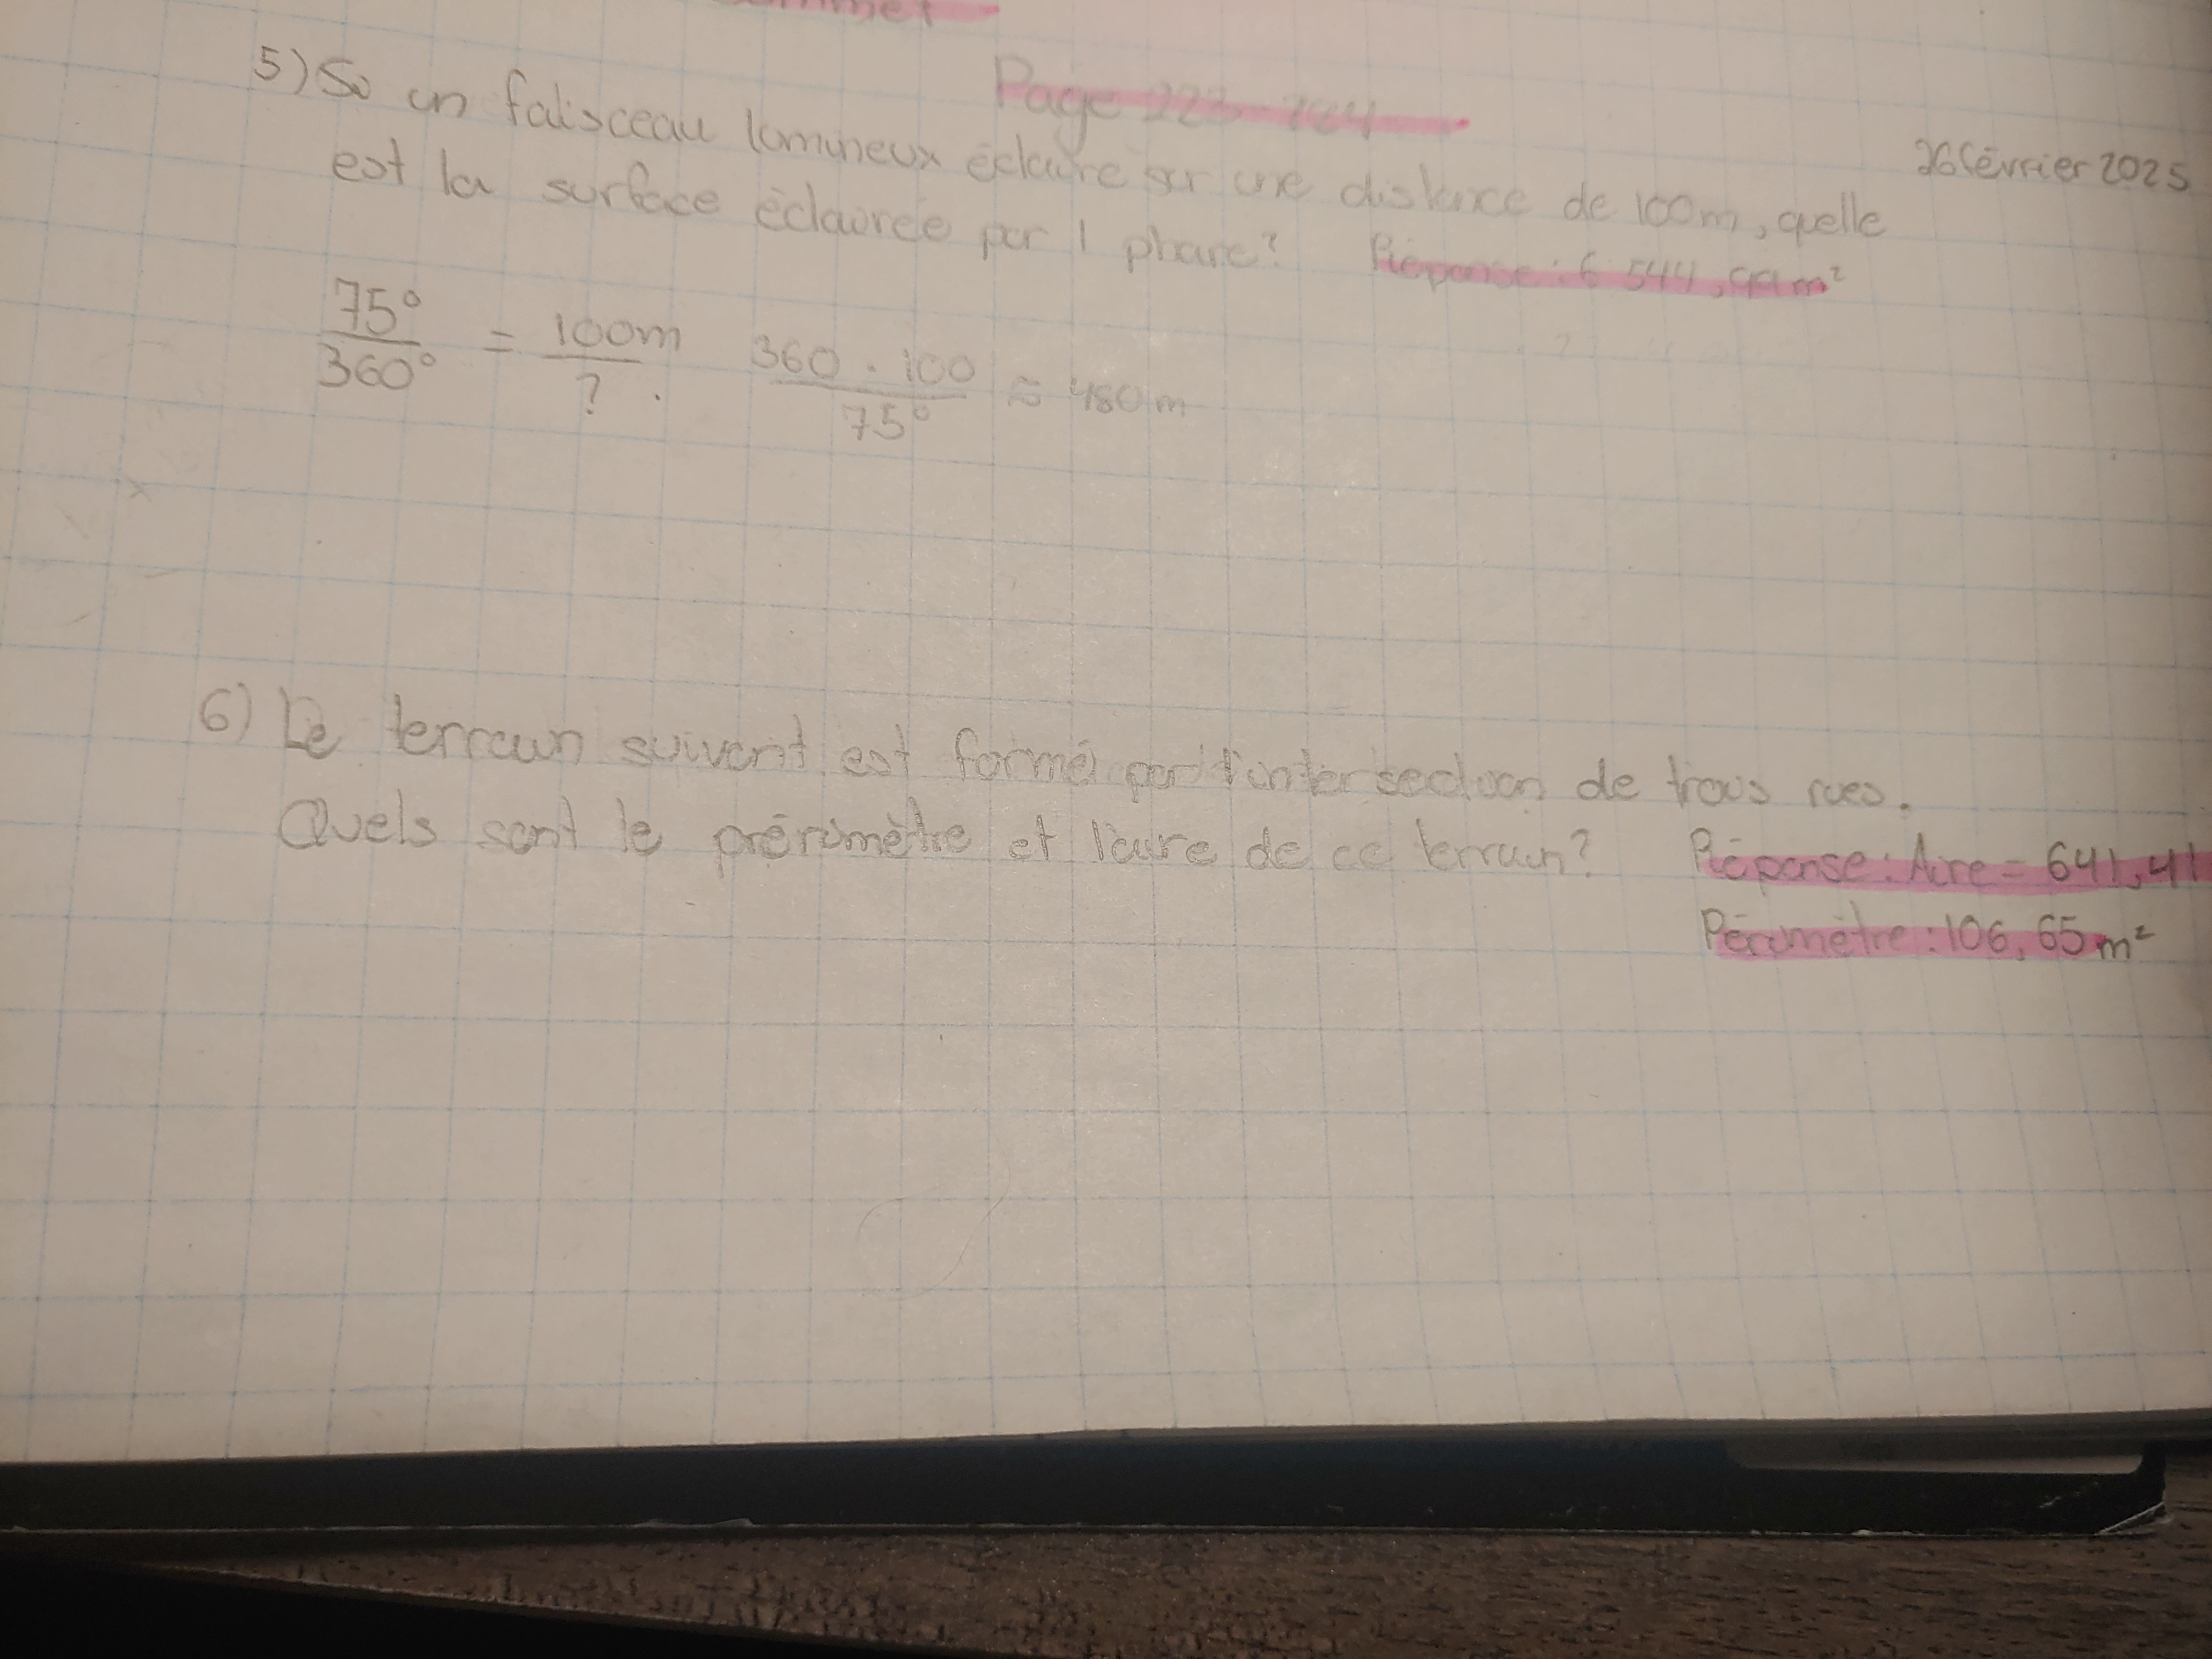 5) Si un faisceau lumineux éclaire sur une distance de 100m, quelle
est la surface éclairée par 1 phare? Réponse: 6 544,99 m²
26 février 2025
75° / 360° = 100m / ? . 360 . 100 / 75° ≈ 480 m
6) Le terrain suivant est formé par l'intersection de trois rues.
Quels sont le prérimètre et l'aire de ce terrain? Réponse: Aire = 641,41
Périmètre: 106,65 m²